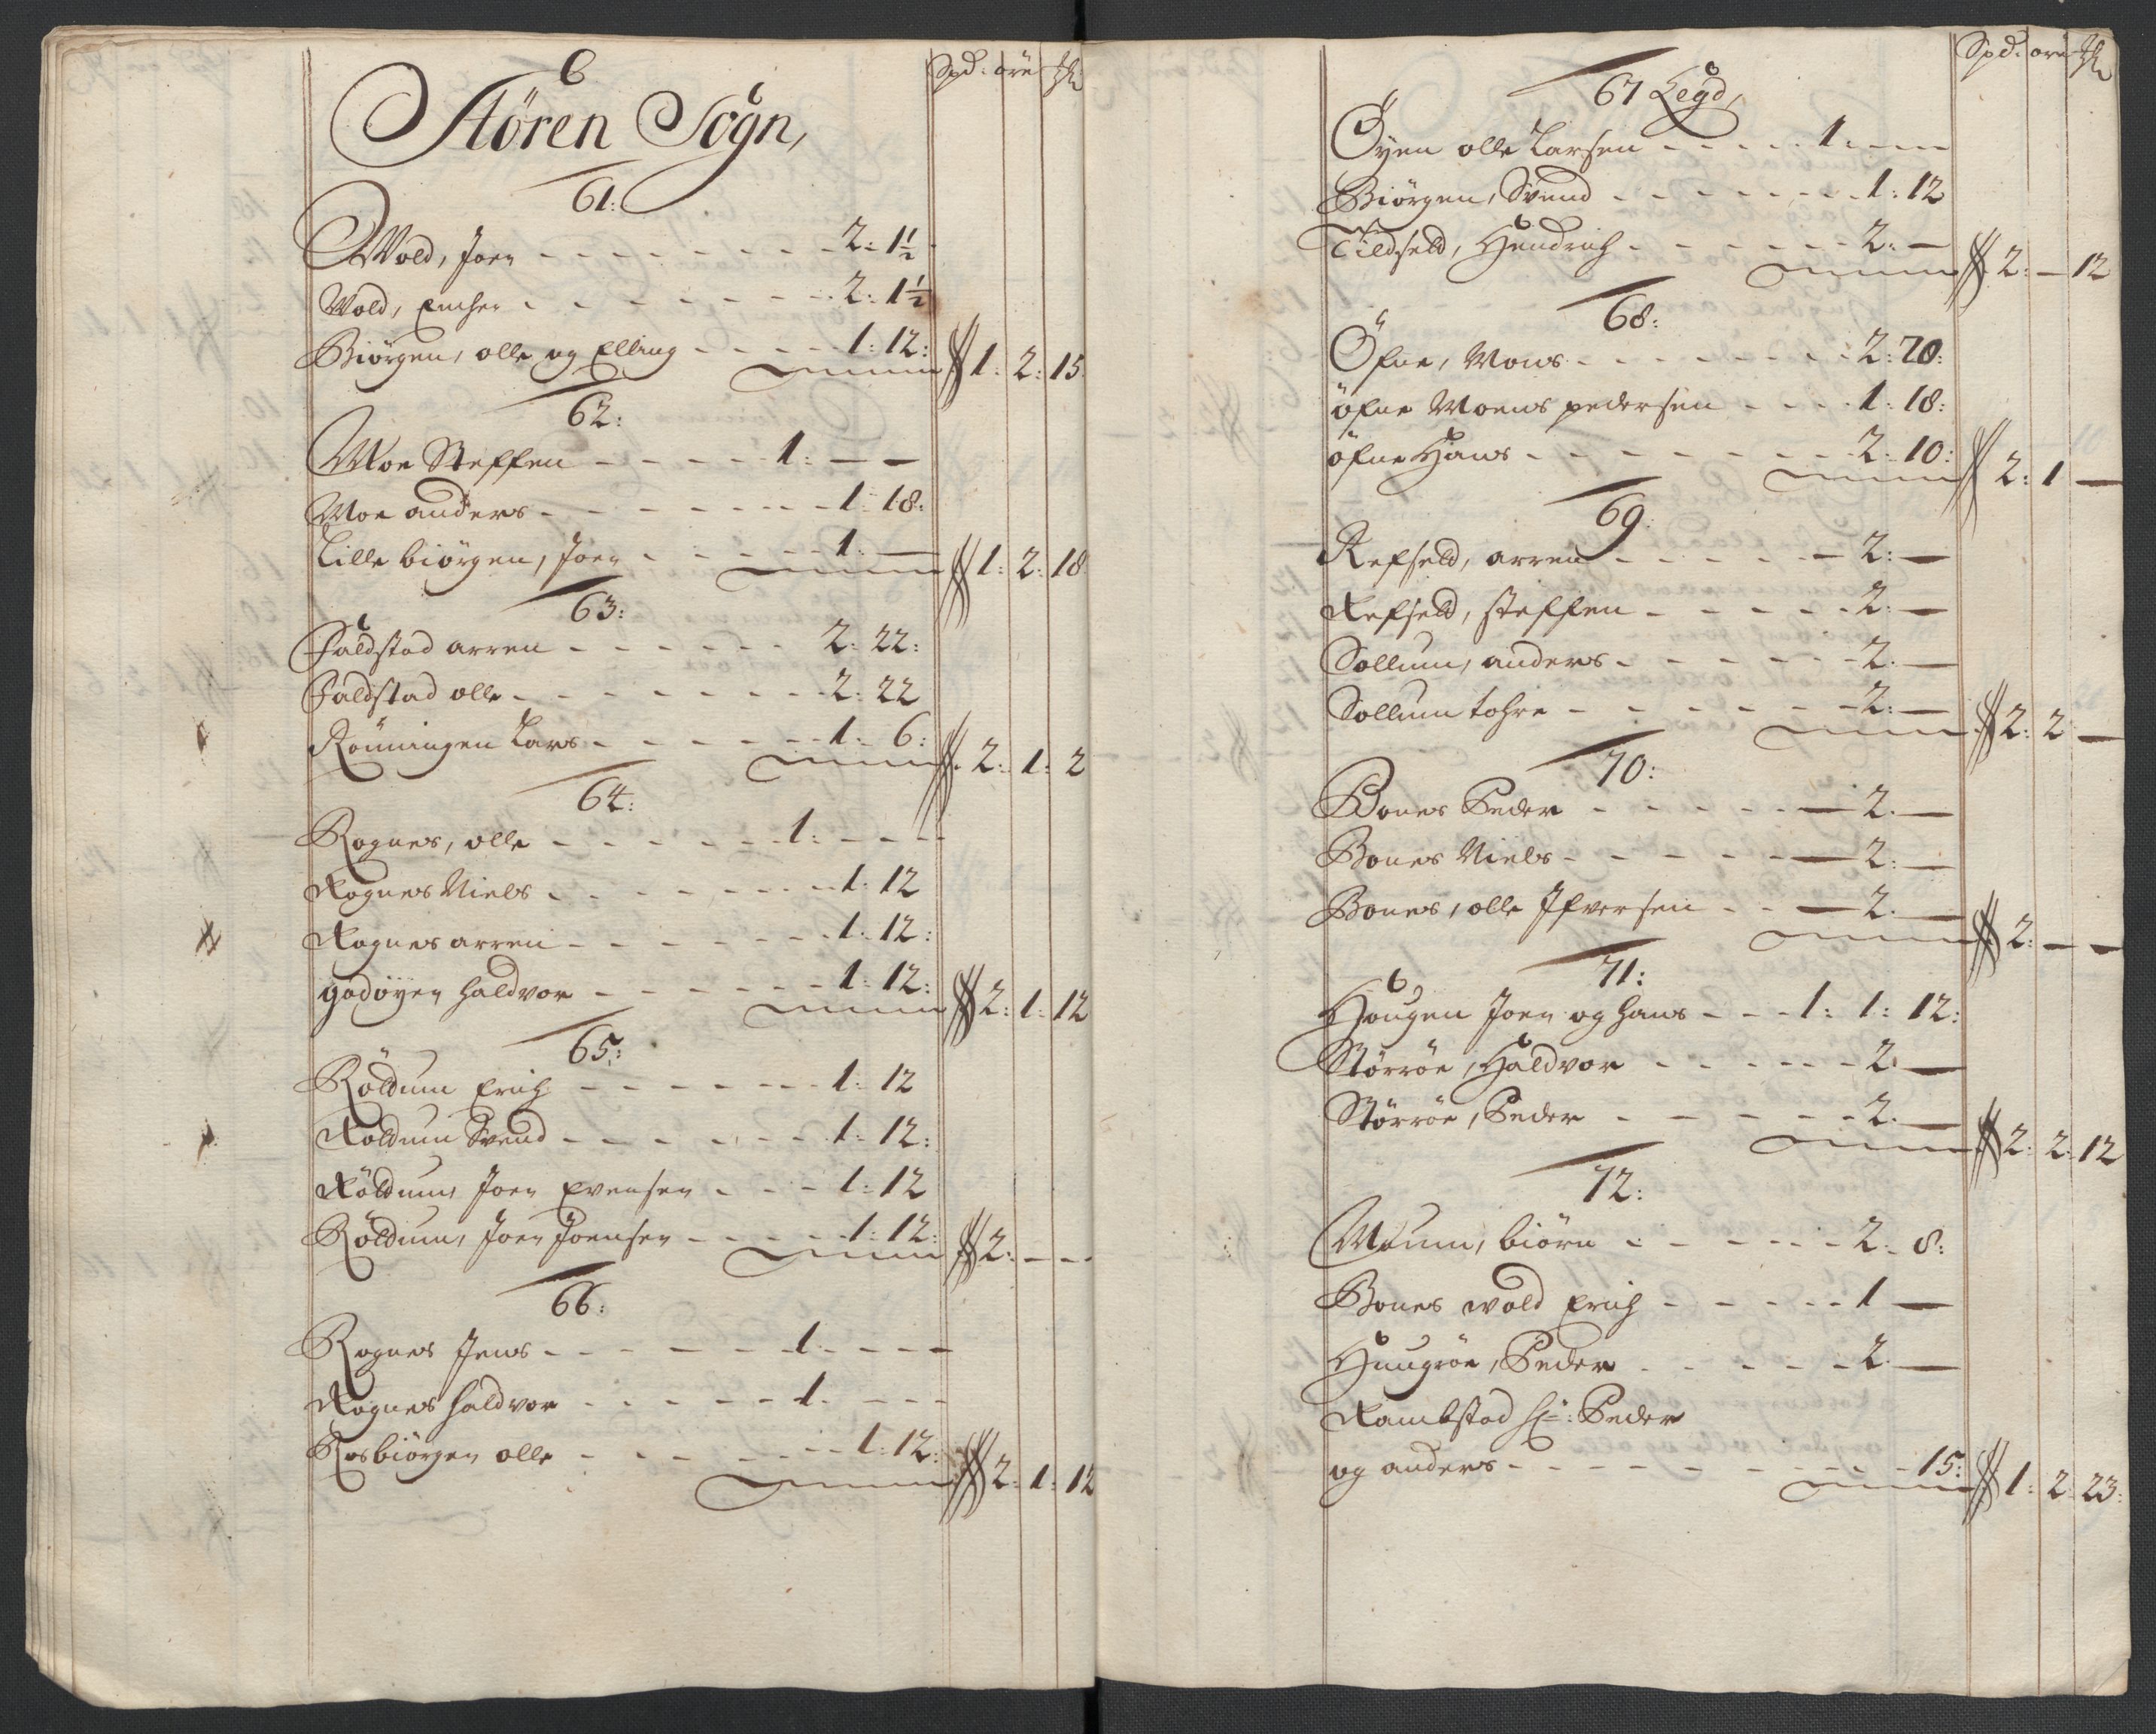 Spd: öre
Stören Sogn,
61:
Wold, Joen - - - - - - 2: 1½
Wold, - - - - - - 2: 1½
Biörgen, olle og Elling - - - - 1: 12: 1: 2: 15
62:
Moe Steffen - - - - 1: — —
Moe anders - - - - - - 1: 18:
Lille biörgen, Joen - - - - 1: — 1: 2: 18
63:
Faldstad arren - - - - - - 2: 22:
Faldstad olle - - - - - - 2: 22
Rönningen Lars - - - - - 1: 6: 2: 1: 2
64:
Rognes, olle - - - - - 1: - - -
Rognes Niels - - - - - - 1: 12
Rognes arren - - - - - - 1: 12:
godöyen Haldvor - - - - - 1: 12: 2: 1: 12
65:
Röldum Erich - - - - - - 1: 12
Röldum Svend - - - - - - 1: 12:
Röldum, Joen Evensen - - - 1: 12
Röldum, Joen Joensen - - - - 1: 12: 2: - -
66:
Rognes Jens - - - - - 1: - - -
Rognes Haldvor - - - - - 1: - - -
Rosbiörgen olle - - - - - 1: 12: 2: 1: 12
Spd: öre
67 Legd,
Öyen olle Larsen - - - - 1: - - -
Biörgen, Svend - - - - - - 1: 12
Hendrich - - - - - 2: — 2: — 12
68:
Öfne, Mons - - - - - - 2: 20:
öfne Moens pedersen - - - 1: 18:
öfne Hans - - - - - - - 2: 10: 2: 1 —
69:
Refseld, arren - - - - - 2: —
Refseld, steffen - - - - - 2: —
Sollum, anders - - - - - 2: —
Sollum tohre - - - - - - 2: — 2: 2: —
70:
Bones Peder - - - - - 2: —
Bones Niels - - - - - 2: —
Bones, olle Ifversen - - — 2: — 2: — —
71:
Hougen Joen og Hans - - - 1: 1: 12:
Störröe, Haldvor - - - - - 2: —
Störröe, Peder - - - - - 2: — 2: 2: 12
72:
Moum, biörn - - - - - 2: 8:
Bones wold Erich - - - - - 1 —
Haugröe, Peder - - - - - 2: —
Rambstad Peder
og anders - - - - - - - - 15: 1: 2: 23: